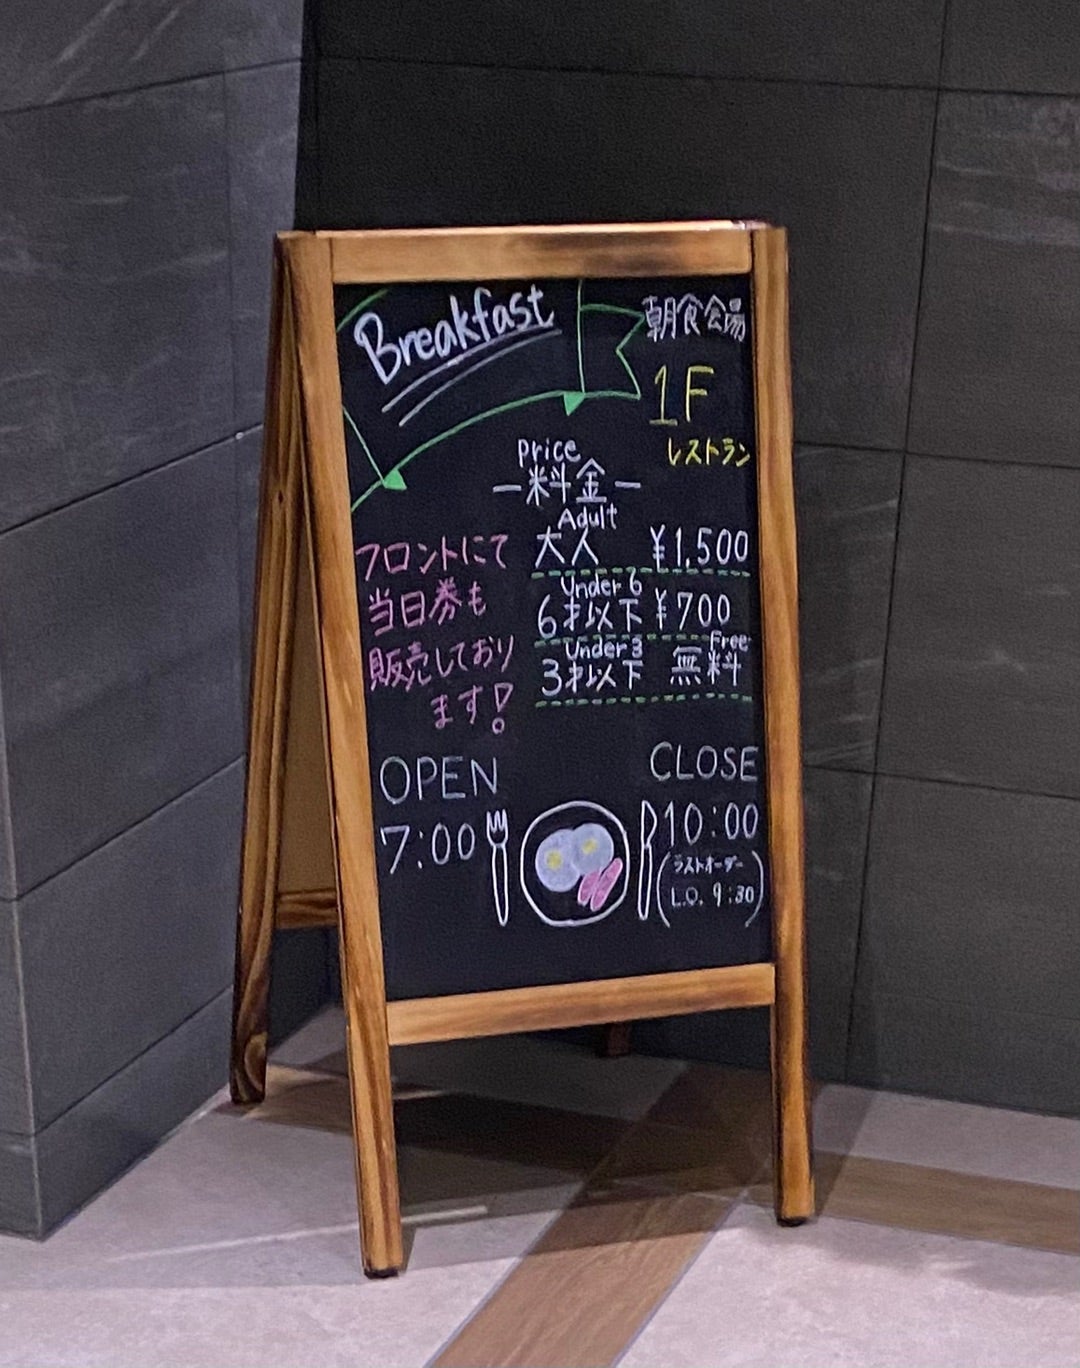 Breakfast
朝食会場
1F
レストラン
price
―料金―
Adult
大人 ¥1,500
Under 6
6才以下 ¥700
Under 3 Free
3才以下 無料
フロントにて
当日券も
販売しており
ます!
OPEN
7:00
CLOSE
10:00
(ラストオーダー
L.O. 9:30)